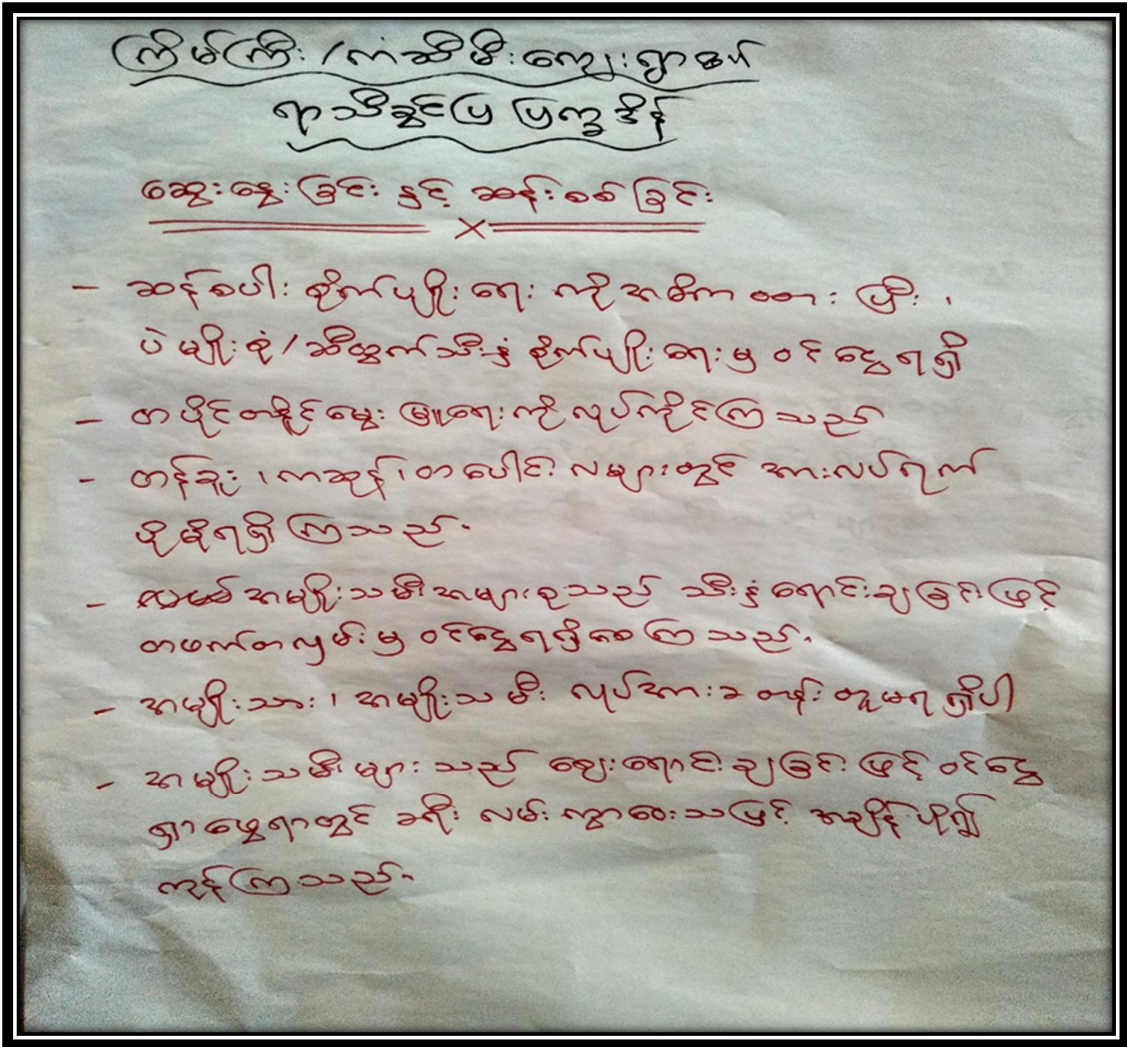 ကြိမ်ကြီး / ကံသီမီးကျေးရွာအုပ်
ရာသီခွင်ပြ ပြက္ခဒိန်
ဆွေးနွေးခြင်း နှင့် ဆန်းစစ်ခြင်း
- ဆန်စပါး စိုက်ပျိုးရေး ကိုအဓိကထား ပြီး ၊
ပဲမျိုးစုံ / ဆီထွက်သီးနှံ စိုက်ပျိုးရေးမှ ဝင်ငွေရရှိ
- တပိုင်တနိုင်မွေးမြူရေးကိုလုပ်ကိုင်ကြသည်
- တန်ခူး ၊ ကဆုန် ၊ တပေါင်း လများတွင် အားလပ်ရက်
ပိုမိုရရှိကြသည်.
- အမျိုးသမီးအများစုသည် သီးနှံရောင်းချခြင်းဖြင့်
တဖက်တလှမ်းမှ ဝင်ငွေရရှိစေကြသည်.
- အမျိုးသား ၊ အမျိုးသမီး လုပ်အားခ တန်းတူမရရှိပါ
- အမျိုးသမီးများ သည် ဈေးရောင်းချခြင်းဖြင့်ဝင်ငွေ
ရှာဖွေရာတွင် ခရီး လမ်းကွာဝေးသဖြင့် အချိန်ပို၍
ကုန်ကြသည်.